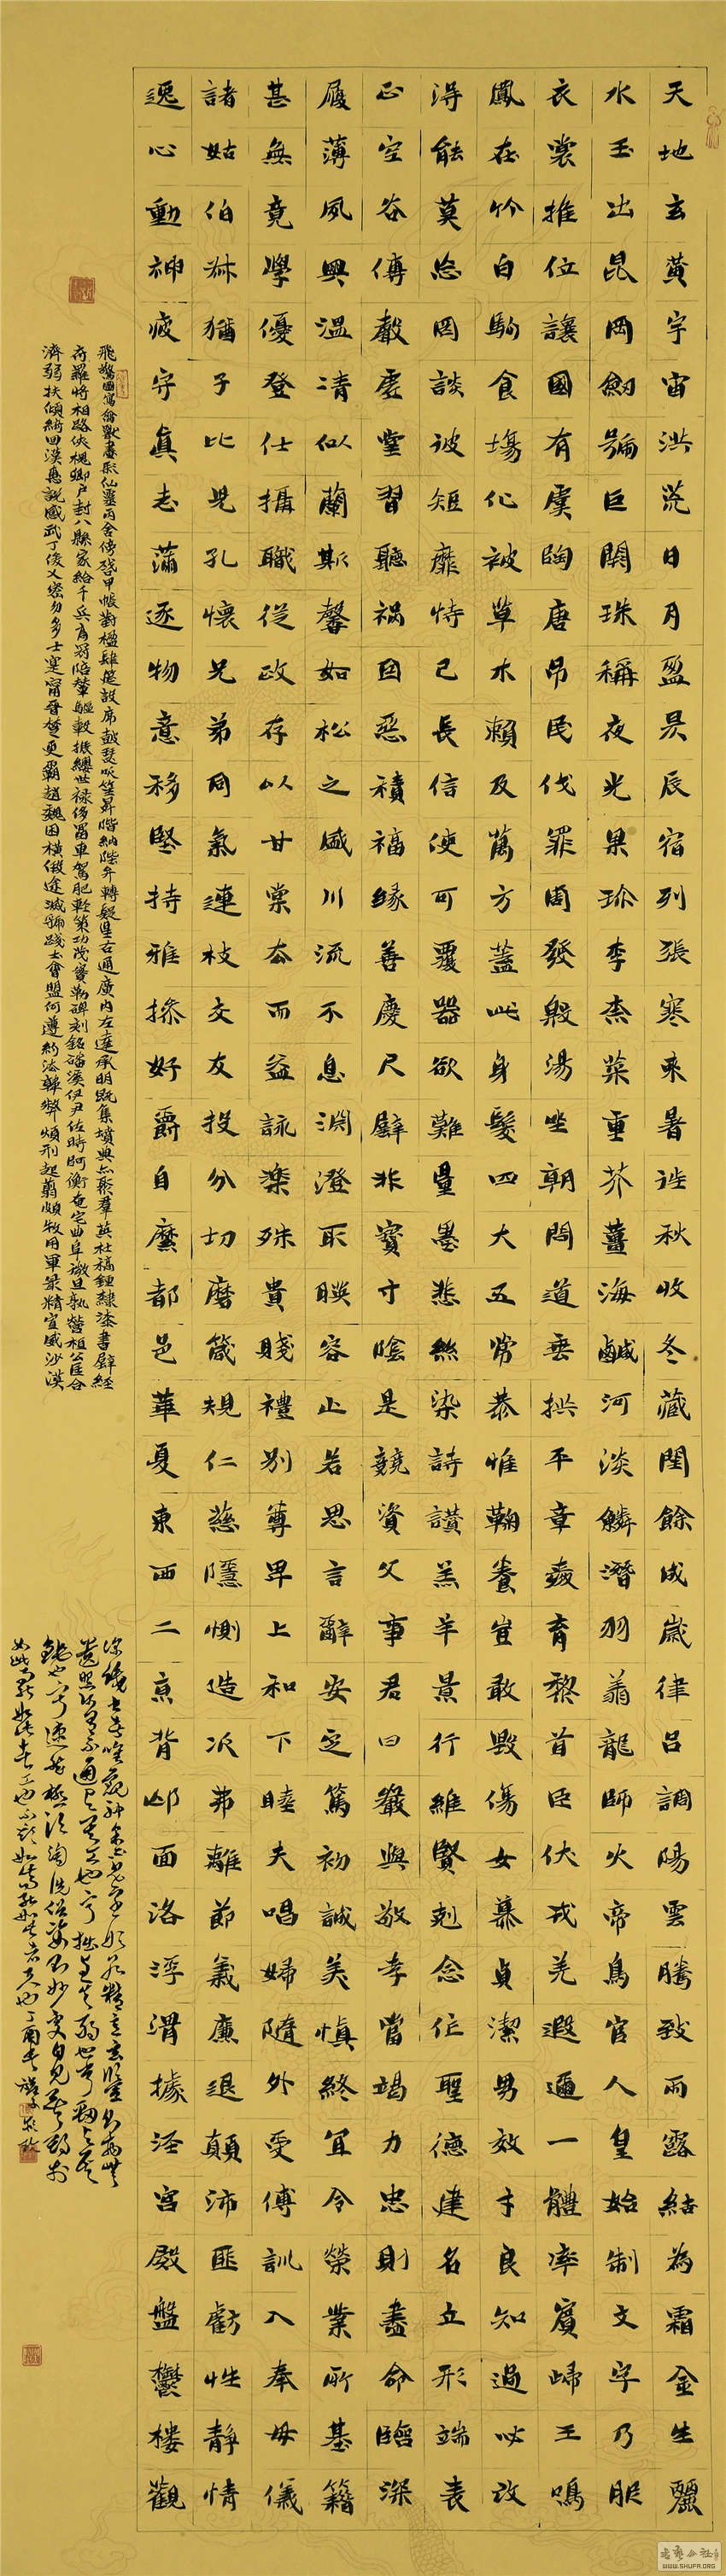 天地玄黃宇宙洪荒日月盈昃辰宿列張寒來暑往秋收冬藏閏餘成歲律呂調陽雲騰致雨露結為霜金生麗
水玉出昆岡劍號巨闕珠稱夜光果珍李柰菜重芥薑海鹹河淡鱗潛羽翔龍師火帝鳥官人皇始制文字乃服
衣裳推位讓國有虞陶唐吊民伐罪周發殷湯坐朝問道垂拱平章愛育黎首臣伏戎羌遐邇一體率賓歸王鳴
鳳在竹白駒食場化被草木賴及萬方蓋此身髮四大五常恭惟鞠養豈敢毀傷女慕貞潔男效才良知過必改
得能莫忘罔談彼短靡恃己長信使可覆器欲難量墨悲絲染詩讚羔羊景行維賢剋念作聖德建名立形端表
正空谷傳聲虛堂習聽禍因惡積福緣善慶尺璧非寶寸陰是競資父事君曰嚴與敬孝當竭力忠則盡命臨深
履薄夙興溫清似蘭斯馨如松之盛川流不息淵澄取暎容止若思言辭安定篤初誠美慎終宜令榮業所基籍
甚無竟學優登仕攝職從政存以甘棠去而益詠樂殊貴賤禮別尊卑上和下睦夫唱婦隨外受傅訓入奉母儀
諸姑伯叔猶子比兒孔懷兄弟同氣連枝交友投分切磨箴規仁慈隱惻造次弗離節義廉退顛沛匪虧性靜情
逸心動神疲守真志滿逐物意移堅持雅操好爵自縻都邑華夏東西二京背邙面洛浮渭據涇宮殿盤鬱樓觀
飛驚圖寫禽獸畫彩仙靈丙舍傍啓甲帳對楹肆筵設席鼓瑟吹笙昇階納陛弁轉疑星右通廣內左達承明既集墳典亦聚群英杜稿鍾隸漆書壁經
府羅將相路俠槐卿戶封八縣家給千兵高冠陪輦驅轂振纓世祿侈富車駕肥輕策功茂實勒碑刻銘磻溪伊尹佐時阿衡奄宅曲阜微旦孰營桓公匡合
濟弱扶傾綺回漢惠說感武丁俊乂密勿多士寔甯晉楚更霸趙魏困橫假途滅虢踐土會盟何遵約法韓弊煩刑起翦頗牧用軍最精宣威沙漠
WWW.SHUFA.ORG